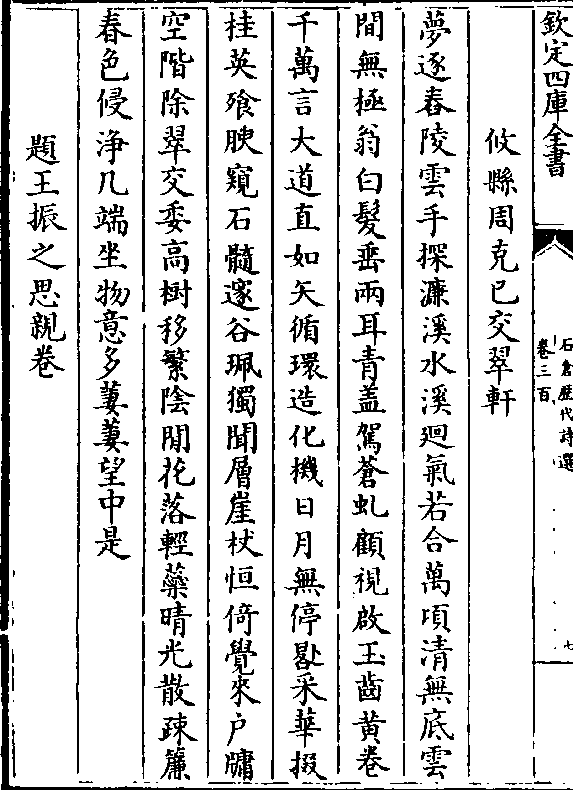 欽定四庫全書
石倉歴代詩選
卷三百
七
攸縣周克已交翠軒
夢逐舂陵雲手探濂溪水溪廻氣若合萬頃清無底雲
間無極翁白髮垂兩耳青盖駕蒼虬顧視啟玉齒黄卷
千萬言大道直如矢循環造化機日月無停晷采華掇
桂英飱腴窺石髓邃谷珮獨聞層崖杖恒倚覺來户牖
空階除翠交委高樹移繁陰閒花落輕蘂晴光散疎簾
春色侵浄几端坐物意多萋萋望中是
題王振之思親卷